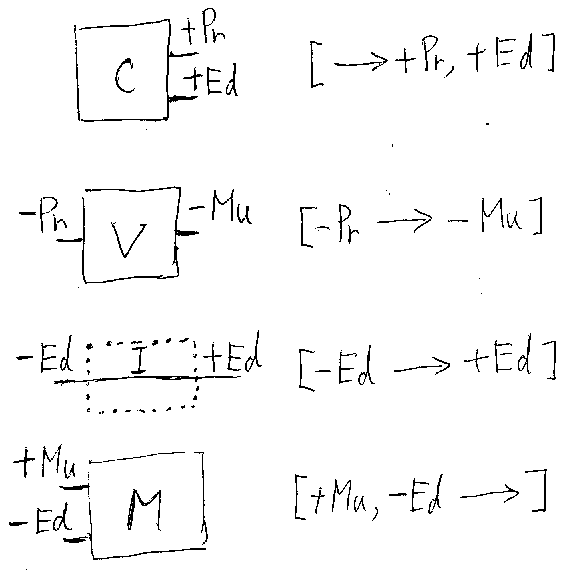 +Pr
C
+Ed
[ → +Pr, +Ed ]
-Pr
V
-Mu
[ -Pr → -Mu ]
-Ed
I
+Ed
[ -Ed → +Ed ]
+Mu
-Ed
M
[ +Mu, -Ed → ]